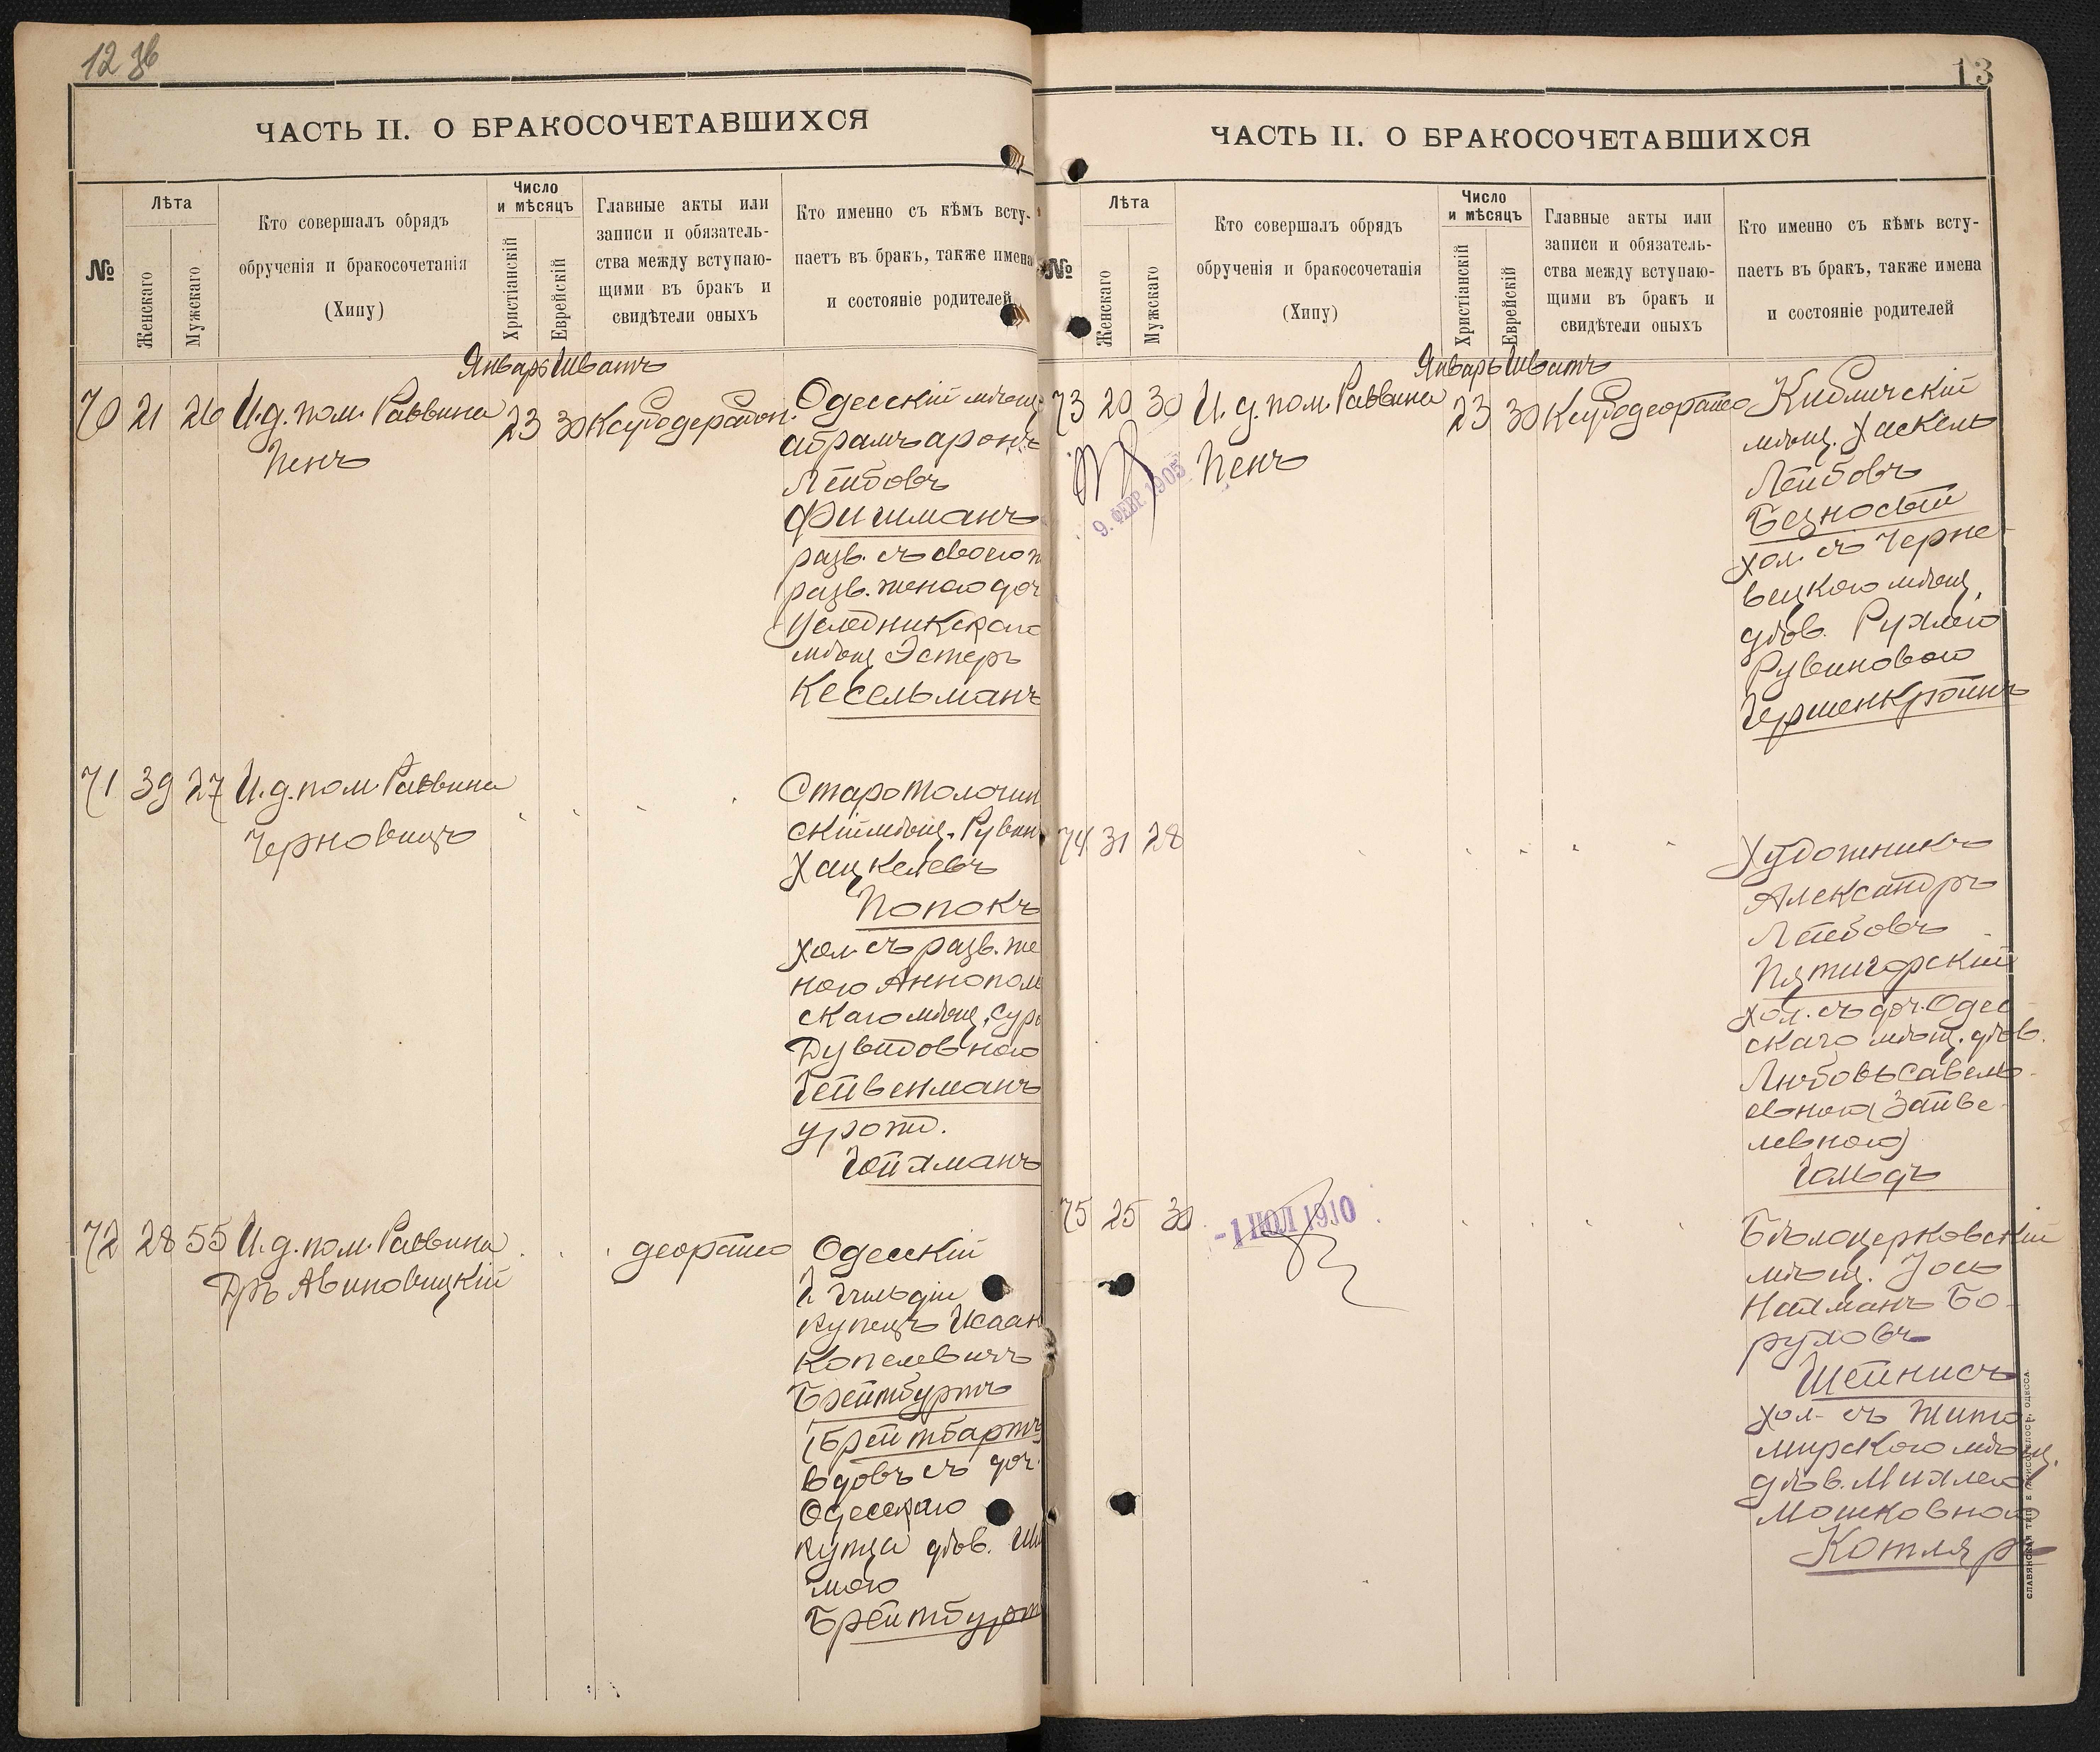 12 об
ЧАСТЬ II. О БРАКОСОЧЕТАВШИХСЯ
№
Лѣта
Женскаго
Мужскаго
Кто совершалъ обрядъ
обрученія и бракосочетанія
(Хипу)
Число
и мѣсяцъ
Христіанскій
Еврейскій
Главные акты или
записи и обязатель-
ства между вступаю-
щими въ бракъ и
свидѣтели оныхъ
Кто именно съ кѣмъ всту-
паетъ въ бракъ, также имена
и состояніе родителей
Январь Шватъ
70 21 26 И.д.пом. Раввина 23 30
Пенъ
Одесскій мѣщ
Абрамъ Аронъ
Лейбовъ
Фишманъ
разв. съ своею
разв. женою доч
мѣщ Эстеръ
Кесельманъ
71 39 27 И.д.пом. Раввина
Черновицъ
Старотолочин
скій мѣщ. Рувин
Хацкелевъ
Попокъ
хол. съ разв. же
ною Аннополь
скаго мѣщ. Сур
Дувидовною
Гейвенманъ
урожд.
Гойхманъ
72 28 55 И.д.пом. Раввина
Дръ Авиновицкій
деорато
Одесскій
2 гильдіи
купецъ Исаак
Копелевичъ
Брейтбуртъ
(Брейтбартъ
вдовъ съ доч.
Одесскаго
купца дѣв.
мою
Брейтбурт
13
ЧАСТЬ II. О БРАКОСОЧЕТАВШИХСЯ
№
Лѣта
Женскаго
Мужскаго
Кто совершалъ обрядъ
обрученія и бракосочетанія
(Хипу)
Число
и мѣсяцъ
Христіанскій
Еврейскій
Главные акты или
записи и обязатель-
ства между вступаю-
щими въ бракъ и
свидѣтели оныхъ
Кто именно съ кѣмъ всту-
паетъ въ бракъ, также имена
и состояніе родителей
Январь Шватъ
73 20 30 И.д.пом. Раввина 23 30 Ксубодеорато
Пенъ
9. ФЕВР. 1905
Кибличскій
мѣщ. Хаскель
Лейбовъ
Безносый
хол. съ Черне-
вецкою мѣщ.
дѣв. Рухлею
Рувиновою
Гершенкройнъ
74 31 28
Художникъ
Александръ
Лейбовъ
Пятигорскій
хол. съ доч. Одес
скаго мѣщ. дѣв.
Любовь Савель-
евною (Зайве-
левною)
Гольдъ
75 25 30
-1 ИЮЛ 1910
Бѣлоцерковскій
мѣщ. Іось
Нахманъ Бо-
руховъ
Шейнисъ
хол. съ Жито
мирскою мѣщ.
дѣв. Михлею
Мошковною
Котляръ
СЛАВЯНСКАЯ ТИП. Е. ХРИСОГЕЛОСЪ, ОДЕССА